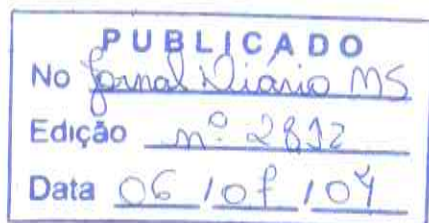 PUBLICADO
No Jornal Diário MS
Edição nº 2892
Data 06 / 07 / 04